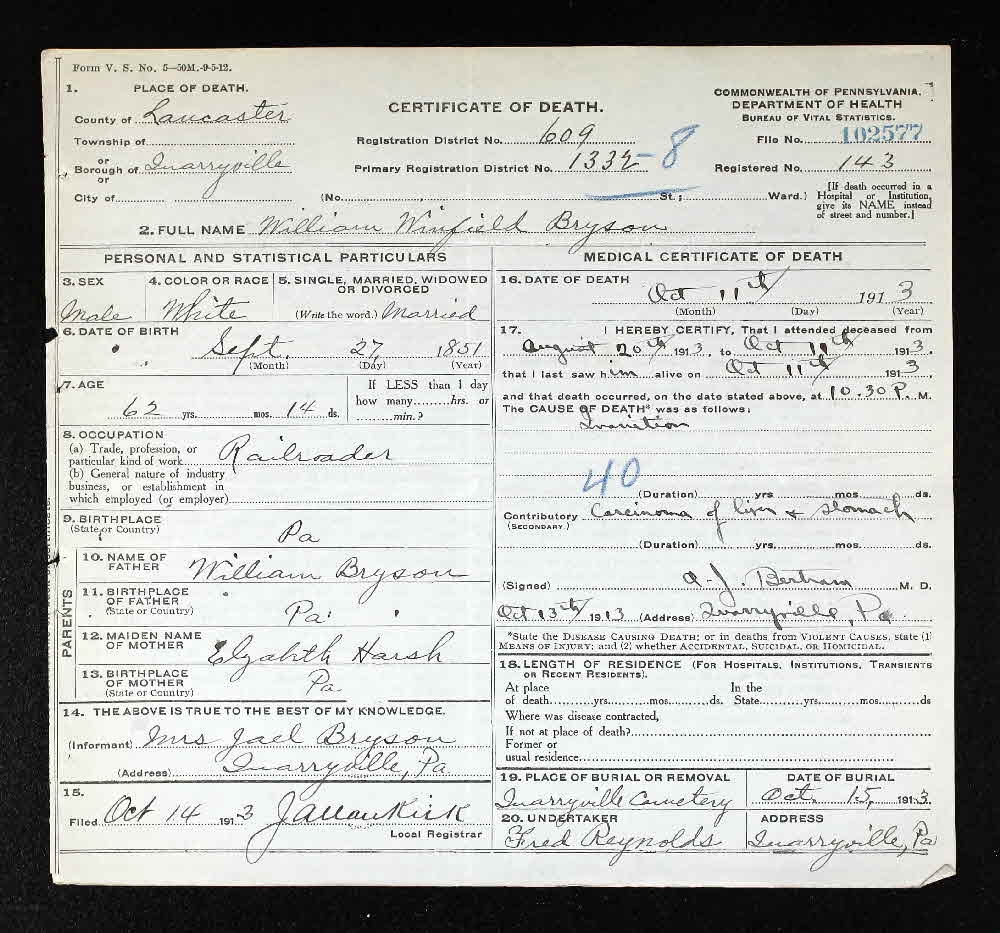 Form V. S. No. 5—50M.-9-5-12.
1. PLACE OF DEATH.
County of Lancaster
Township of
or
Borough of Quarryville
or
City of
CERTIFICATE OF DEATH.
Registration District No. 609
Primary Registration District No. 1332-8
(No. St.; Ward.)
COMMONWEALTH OF PENNSYLVANIA.
DEPARTMENT OF HEALTH
BUREAU OF VITAL STATISTICS.
File No. 102577
Registered No. 143
[If death occurred in a
Hospital or Institution,
give its NAME instead
of street and number.]
2. FULL NAME William Winfield Bryson
PERSONAL AND STATISTICAL PARTICULARS
3. SEX
Male
4. COLOR OR RACE
White
5. SINGLE, MARRIED, WIDOWED
OR DIVORCED
(Write the word.) Married
6. DATE OF BIRTH
Sept. 27, 1851
(Month) (Day) (Year)
7. AGE
62 yrs. mos. 14 ds.
If LESS than 1 day
how many hrs. or
min.?
8. OCCUPATION
(a) Trade, profession, or
particular kind of work Railroader
(b) General nature of industry
business, or establishment in
which employed (or employer)
9. BIRTHPLACE
(State or Country)
Pa
PARENTS
10. NAME OF
FATHER
William Bryson
11. BIRTHPLACE
OF FATHER
(State or Country)
Pa
12. MAIDEN NAME
OF MOTHER
Elzabith Harsh
13. BIRTHPLACE
OF MOTHER
(State or Country)
Pa
14. THE ABOVE IS TRUE TO THE BEST OF MY KNOWLEDGE.
(Informant) Mrs Jael Bryson
(Address) Quarryville, Pa.
15.
Filed Oct 14 1913 J Allan Kirk
Local Registrar
MEDICAL CERTIFICATE OF DEATH
16. DATE OF DEATH
Oct 11th 1913
(Month) (Day) (Year)
17. I HEREBY CERTIFY, That I attended deceased from
August 20th 1913, to Oct 11th 1913,
that I last saw him alive on Oct 11th 1913
and that death occurred, on the date stated above, at 10.30 P. M.
The CAUSE OF DEATH* was as follows:
Inanition
40
(Duration) yrs mos ds.
Contributory Carcinoma of liver & stomach
(SECONDARY)
(Duration) yrs. mos. ds.
(Signed) A. J. Bertram M. D.
Oct 13th 1913 (Address) Quarryville, Pa.
*State the DISEASE CAUSING DEATH; or in deaths from VIOLENT CAUSES, state (1)
MEANS OF INJURY; and (2) whether ACCIDENTAL, SUICIDAL, OR HOMICIDAL.
18. LENGTH OF RESIDENCE (FOR HOSPITALS, INSTITUTIONS, TRANSIENTS
OR RECENT RESIDENTS).
At place In the
of death yrs. mos. ds. State yrs. mos. ds
Where was disease contracted,
If not at place of death?
Former or
usual residence
19. PLACE OF BURIAL OR REMOVAL
Quarryville Cemetery
DATE OF BURIAL
Oct. 15, 1913.
20. UNDERTAKER
Fred Reynolds
ADDRESS
Quarryville, Pa